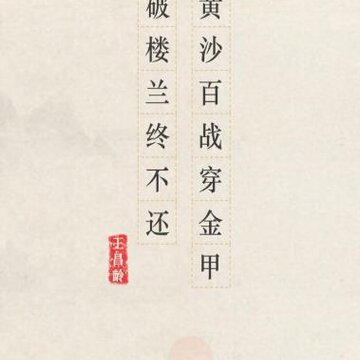 黄沙百战穿金甲
破楼兰终不还
王昌龄